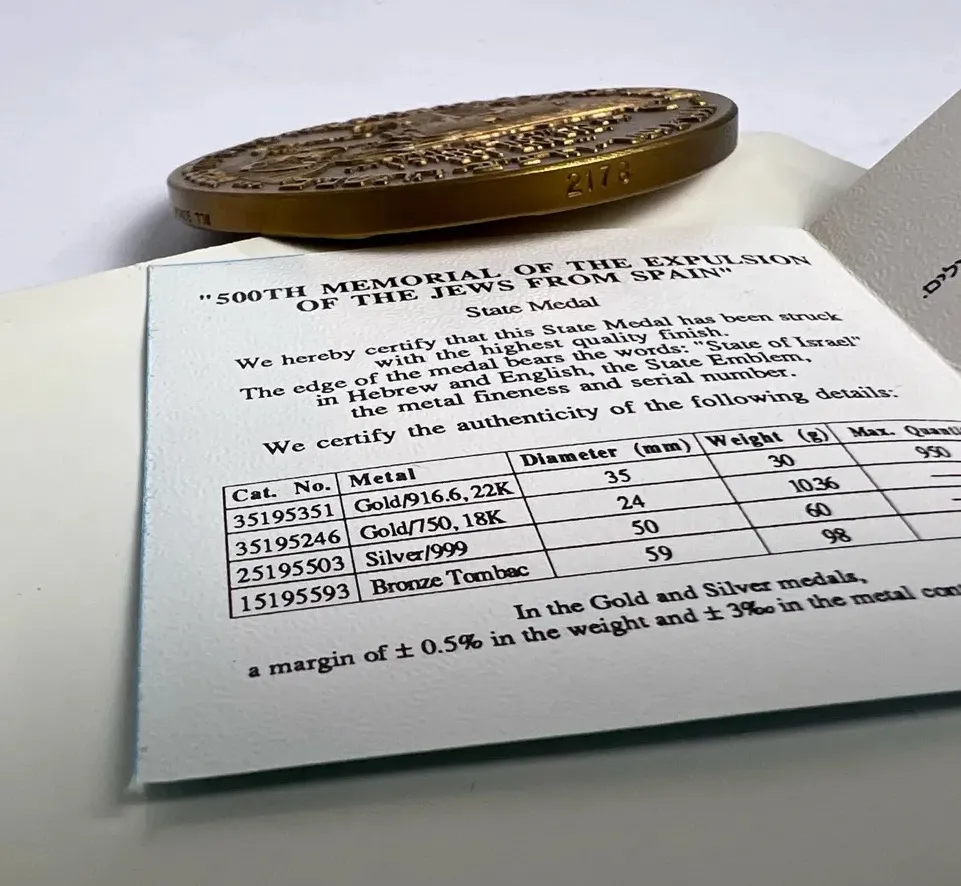 2178
"500TH MEMORIAL OF THE EXPULSION
OF THE JEWS FROM SPAIN"
State Medal
We hereby certify that this State Medal has been struck
with the highest quality finish.
The edge of the medal bears the words: "State of Israel"
in Hebrew and English, the State Emblem,
the metal fineness and serial number.
We certify the authenticity of the following details:
Cat. No. Metal Diameter (mm) Weight (g) Max.
35195351 Gold/916.6, 22K 35 30 950
35195246 Gold/750, 18K 24 10.36 —
25195503 Silver/999 50 60 —
15195593 Bronze Tombac 59 98
In the Gold and Silver medals,
a margin of ± 0.5% in the weight and ± 3‰ in the metal